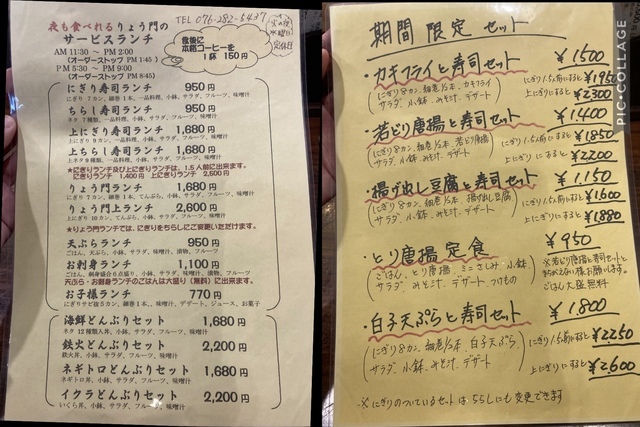 夜も食べれるりょう門の
サービスランチ
TEL 076-282-5437
火の夜
水曜日
定休日
AM 11:30 ～ PM 2:00
(オーダーストップ PM 1:45)
PM 5:30 ～ PM 9:00
(オーダーストップ PM 8:45)
食後に
本格コーヒーを
1杯 150円
にぎり寿司ランチ 950円
にぎり7カン、細巻1本、一品料理、小鉢、サラダ、フルーツ、味噌汁
ちらし寿司ランチ 950円
ネタ7種類、一品料理、小鉢、サラダ、フルーツ、味噌汁
上にぎり寿司ランチ 1,680円
上にぎり9カン、一品料理、小鉢、サラダ、フルーツ、味噌汁
上ちらし寿司ランチ 1,680円
上ネタ9種類、一品料理、小鉢、サラダ、フルーツ、味噌汁
★にぎりランチ及び上にぎりランチは、1.5人前に出来ます。
にぎりランチ 1,400円 上にぎりランチ 2,500円
りょう門ランチ 1,680円
にぎり7カン、細巻1本、てんぷら、小鉢、サラダ、フルーツ、味噌汁
りょう門上ランチ 2,600円
上にぎり10カン、てんぷら、小鉢、サラダ、フルーツ、味噌汁
★りょう門ランチでは、にぎりをちらしにご変更いただけます。
天ぷらランチ 950円
ごはん、天ぷら、小鉢、サラダ、味噌汁、漬物、フルーツ
お刺身ランチ 1,100円
ごはん、刺身盛合6点盛り、小鉢、サラダ、味噌汁、漬物、フルーツ
天ぷら・お刺身ランチのごはんは大盛り(無料)に出来ます。
お子様ランチ 770円
にぎりサビ抜5カン、細巻1本、、味噌汁、デザート、ジュース、お菓子
海鮮どんぶりセット 1,680円
ネタ12種類入丼、小鉢、サラダ、フルーツ、味噌汁
鉄火どんぶりセット 2,200円
鉄火丼、小鉢、サラダ、フルーツ、味噌汁
ネギトロどんぶりセット 1,680円
ネギトロ丼、小鉢、サラダ、フルーツ、味噌汁
イクラどんぶりセット 2,200円
いくら丼、小鉢、サラダ、フルーツ、味噌汁
期間限定セット
・カキフライと寿司セット ¥1500
(にぎり8カン、細巻1/2本、カキフライ
サラダ、小鉢、みそ汁、デザート)
にぎり1.5人前にすると ¥1950
上にぎりにすると ¥2300
・若どり唐揚と寿司セット ¥1,400
(にぎり8カン、細巻1/2本、若どり唐揚
サラダ、小鉢、みそ汁、デザート)
にぎり1.5人前にすると ¥1850
上にぎりにすると ¥2200
・揚げ出し豆腐と寿司セット ¥1,150
(にぎり8カン、細巻1/2本、揚げ出し豆腐
サラダ、小鉢、みそ汁、デザート)
にぎり1.5人前にすると ¥1,600
上にぎりにすると ¥1880
・とり唐揚定食 ¥950
(ごはん、とり唐揚、ミニさしみ、小鉢
サラダ、みそ汁、デザート、つけもの)
※若どり唐揚と寿司セットと
まちがえない様お願いします。
ごはん大盛無料
・白子天ぷらと寿司セット ¥1,800
(にぎり8カン、細巻1/2本、白子天ぷら、
サラダ、小鉢、みそ汁、デザート)
にぎり1.5人前にすると ¥2250
上にぎりにすると ¥2,600
※にぎりのついているセットは ちらしにも変更できます
PIC·COLLAGE